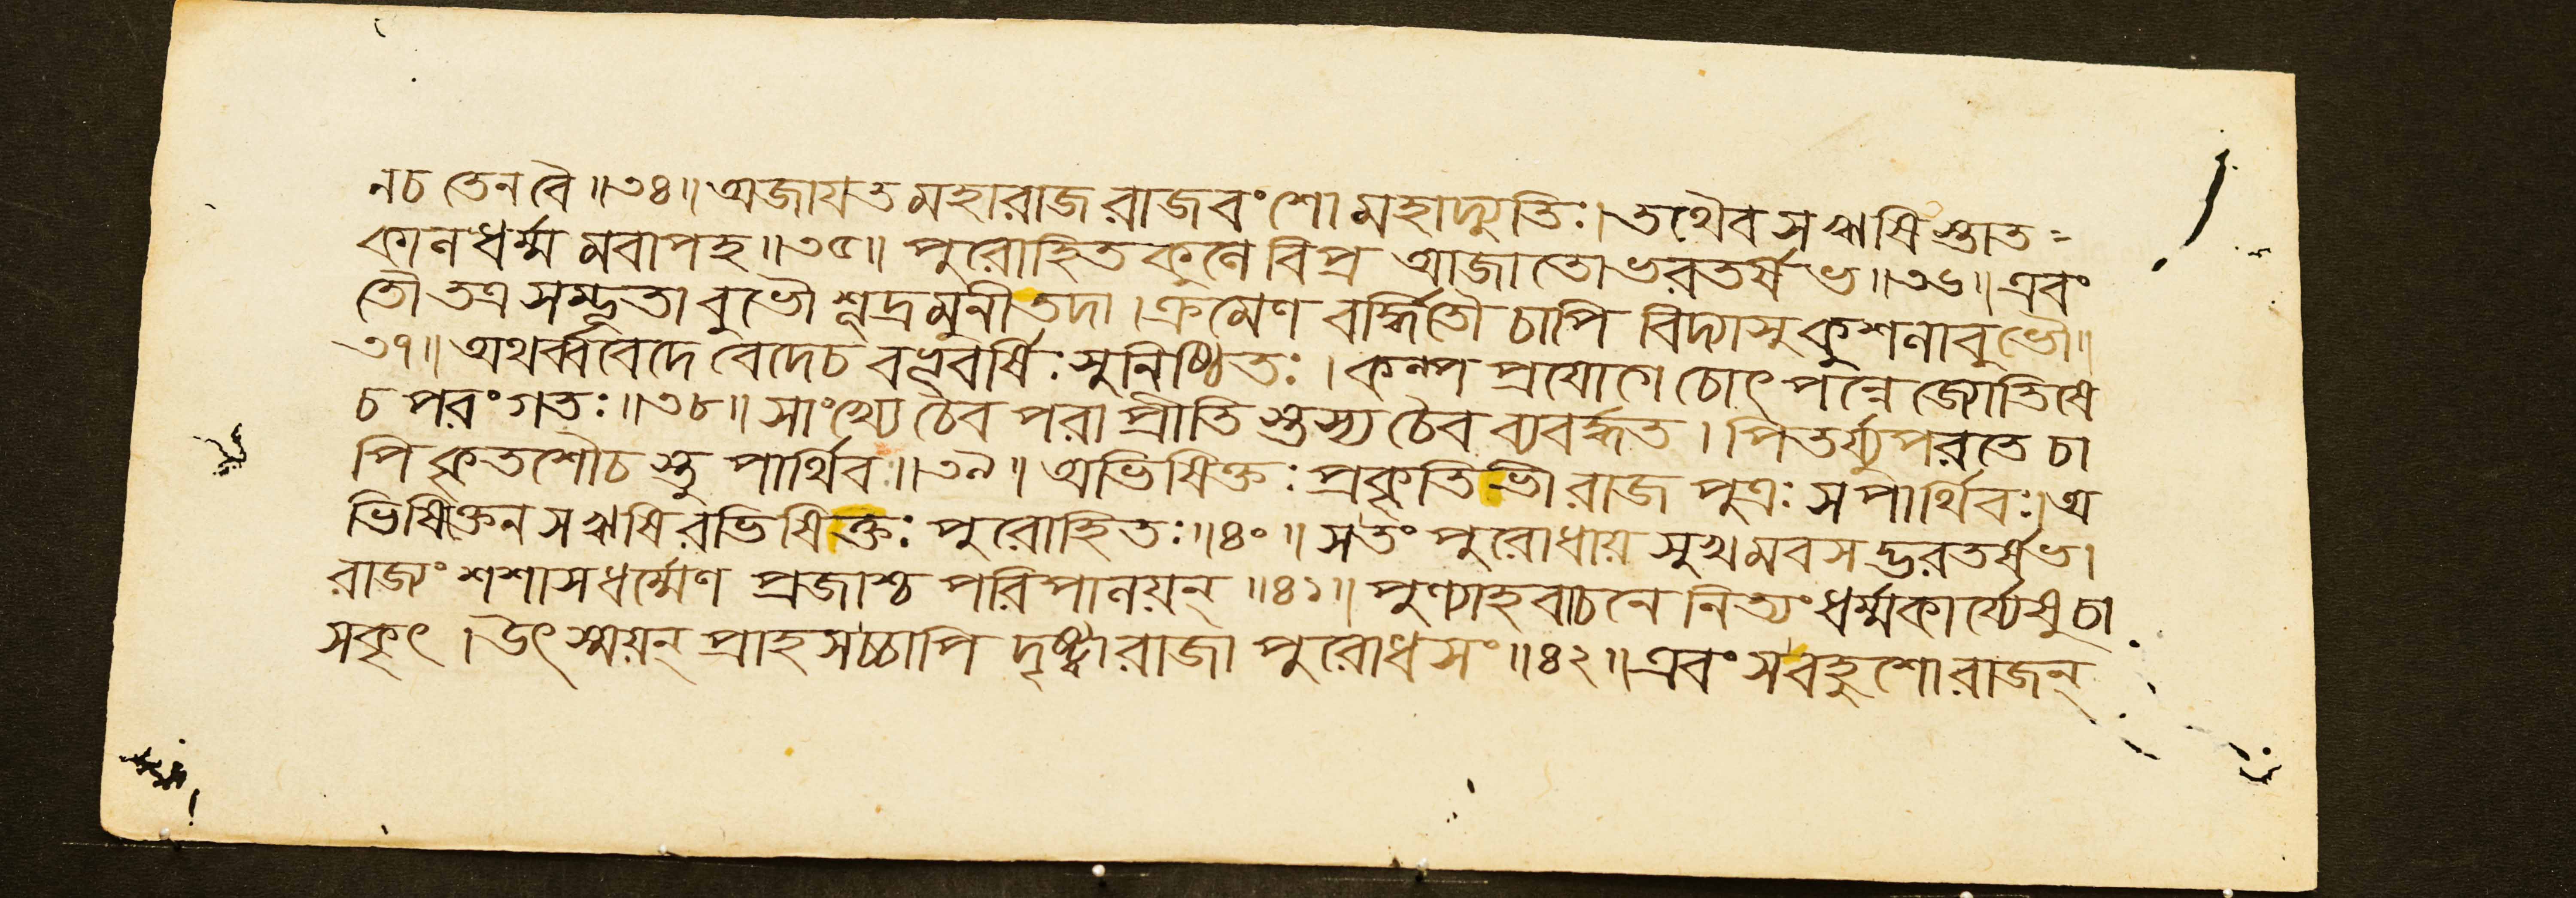 নচ তেন বৈ ॥৩৪॥ অজায়ত মহারাজ রাজবংশো মহাদ্যুতিঃ। তথৈব স ঋষি স্তাত-
কানধর্ম্ম মবাপহ ॥৩৫॥ পুরোহিত কুলে বিপ্র আজাতো ভরতর্ষভ ॥৩৬॥ এবং
তৌ তত্র সম্ভূতা বুভৌ শূদ্রমুনী তদা। ক্রমেণ বর্দ্ধিতৌ চাপি বিদ্যাসু কুশলাবুভৌ॥
৩৭॥ অথর্ব্ববেদে বেদেচ বভূবর্ষিঃ সুনিষ্ঠিতঃ। কল্প প্রযোগে চোৎপন্নে জ্যোতিষে
চ পরং গতঃ ॥৩৮॥ সাংখ্যে চৈব পরা প্রীতি স্তস্য চৈব ব্যবর্দ্ধত। পিতর্য্যুপরতে চা
পি কৃতশৌচ স্তু পার্থিব ॥৩৯॥ অভিষিক্তঃ প্রকৃতিভী রাজপুত্রঃ স পার্থিবঃ। অ
ভিষিক্তেন স ঋষি রভিষিক্তঃ পুরোহিতঃ ॥৪০॥ স তং পুরোধায় সুখমবসদ্ভরতর্ষভ।
রাজ্যং শশাস ধর্ম্মেণ প্রজাশ্চ পরিপালয়ন্ ॥৪১॥ পুণ্যাহবাচনে নিত্যং ধর্ম্মকার্য্যেষু চা
সকৃৎ। উৎস্ময়ন্ প্রাহসচ্চাপি দৃষ্ট্বা রাজা পুরোধসং ॥৪২॥ এবং স বহুশো রাজন্